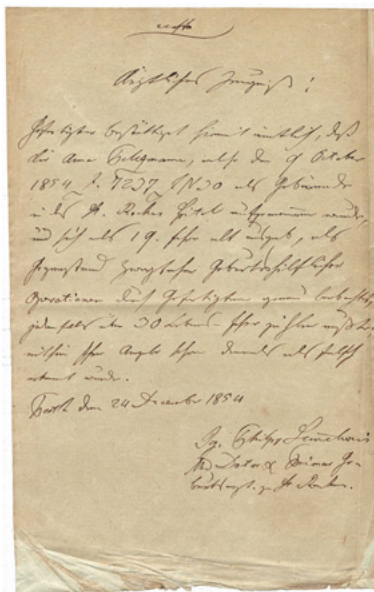 Ärztliches Zeugniß!
Gefertigter bestättiget hiermit amtlich, daß
die Anna, welche den 9 October
1854 als Gebärende
in das St. Rochus Spital aufgenommen wurde,
und sich als 19 Jahre alt ausgab, als
Gegenstand geburtshilflicher
Operationen genau beobachtet,
jedenfalls den 30 Lebens-Jahre zählen mußte,
mithin ihre Angabe schon damals als falsch
erkannt wurde.
den 24 December 1854
Philipp Semmelweis
Doctor & Primar Ge-
burtsarzt zu St Rochus.